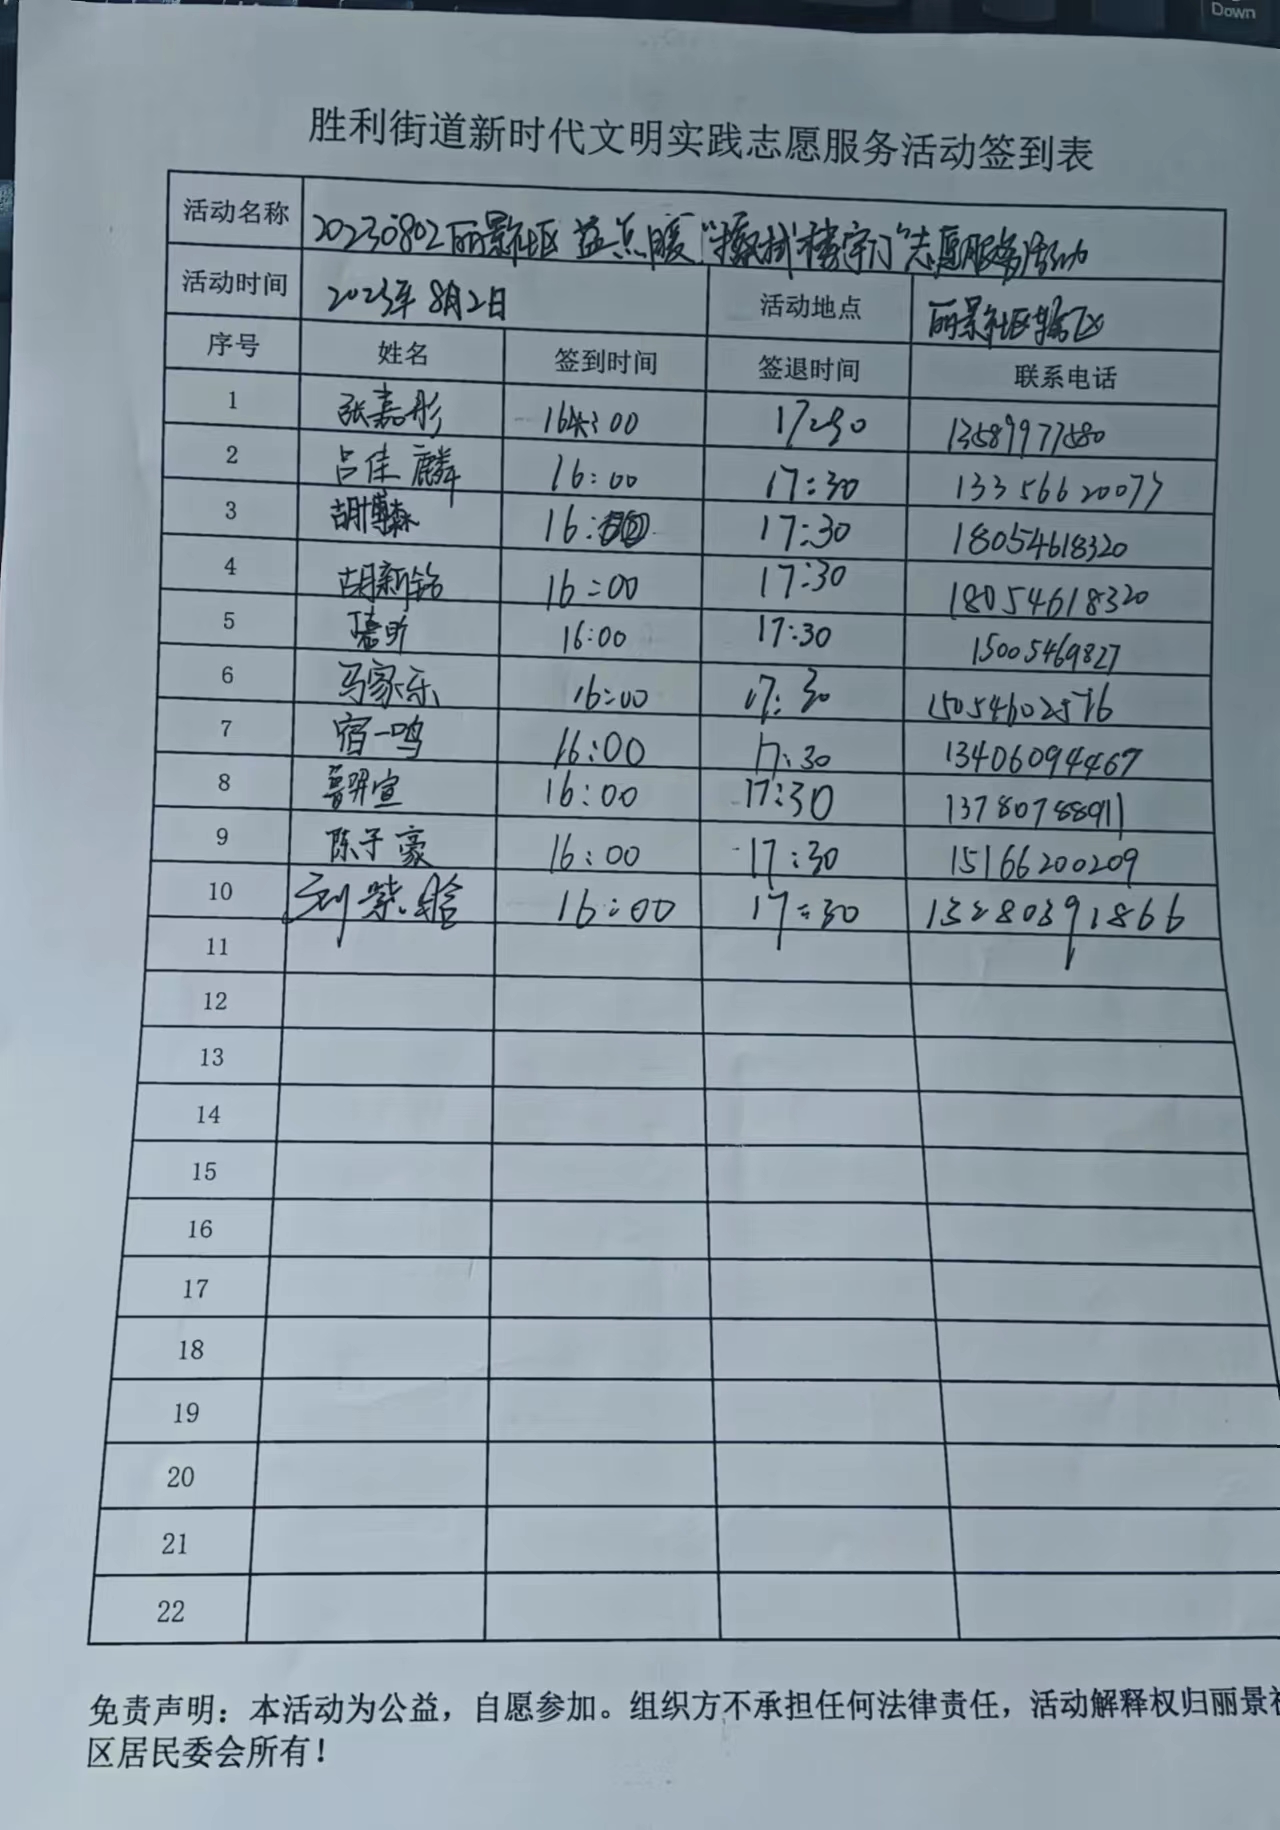 Down
胜利街道新时代文明实践志愿服务活动签到表
活动名称 20230802丽景社区益点暖"擦拭楼宇门"志愿服务活动
活动时间 2023年8月2日 活动地点 丽景社区辖区
序号 姓名 签到时间 签退时间 联系电话
1 张嘉彤 16:00 17:30 13589977580
2 吕佳麟 16:00 17:30 13356620077
3 胡博森 16:00 17:30 18054618320
4 胡新铭 16:00 17:30 18054618320
5 16:00 17:30 15005469827
6 马家乐 16:00 17:30 15054602576
7 宿一鸣 16:00 17:30 13406094467
8 鲁玥宣 16:00 17:30 13780788911
9 陈子豪 16:00 17:30 15166200209
10 刘紫晗 16:00 17:30 13280391866
11
12
13
14
15
16
17
18
19
20
21
22
免责声明：本活动为公益，自愿参加。组织方不承担任何法律责任，活动解释权归丽景社
区居民委会所有！